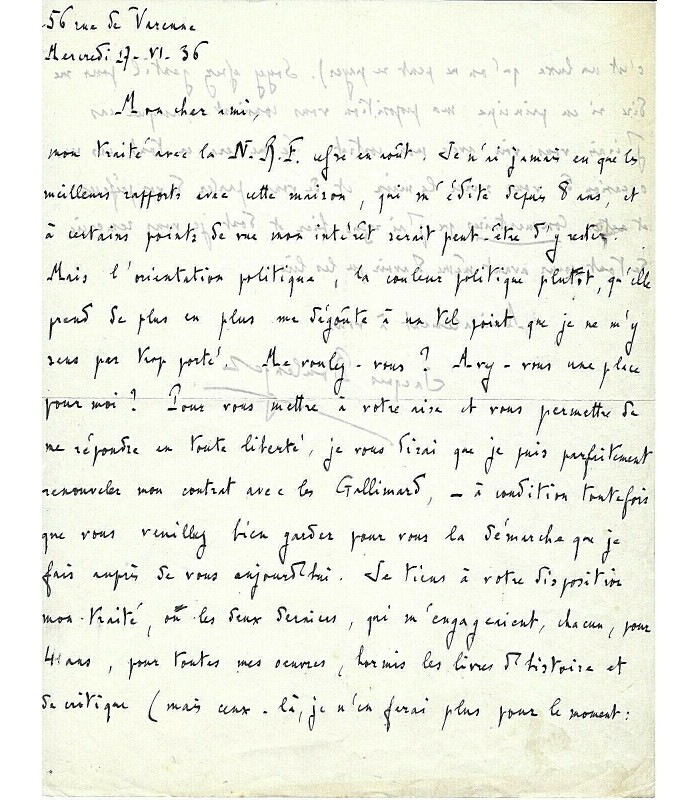 56 rue de Varenne
Mercredi 17-VI-36
Mon cher ami,
mon traité avec la N.R.F. cesse en août. Je n'ai jamais eu que les
meilleurs rapports avec cette maison, qui m'édite depuis 8 ans, et
à certains points de vue mon intérêt serait peut-être d'y rester.
Mais l'orientation politique, la couleur politique plutôt, qu'elle
prend de plus en plus me dégoûte à un tel point que je ne m'y
sens pas trop porté. Me voulez-vous ? Avez-vous une place
pour moi ? Pour vous mettre à votre aise et vous permettre de
me répondre en toute liberté, je vous dirai que je puis parfaitement
renouveler mon contrat avec les Gallimard, - à condition toutefois
que vous veuillez bien garder pour vous la démarche que je
fais auprès de vous aujourd'hui. Je tiens à votre disposition
mon traité, ou les deux derniers, qui m'engageaient, chacun, pour
4 ans, pour toutes mes oeuvres, hormis les livres d'histoire et
de critique (mais ceux-là, je n'en ferai plus pour le moment :